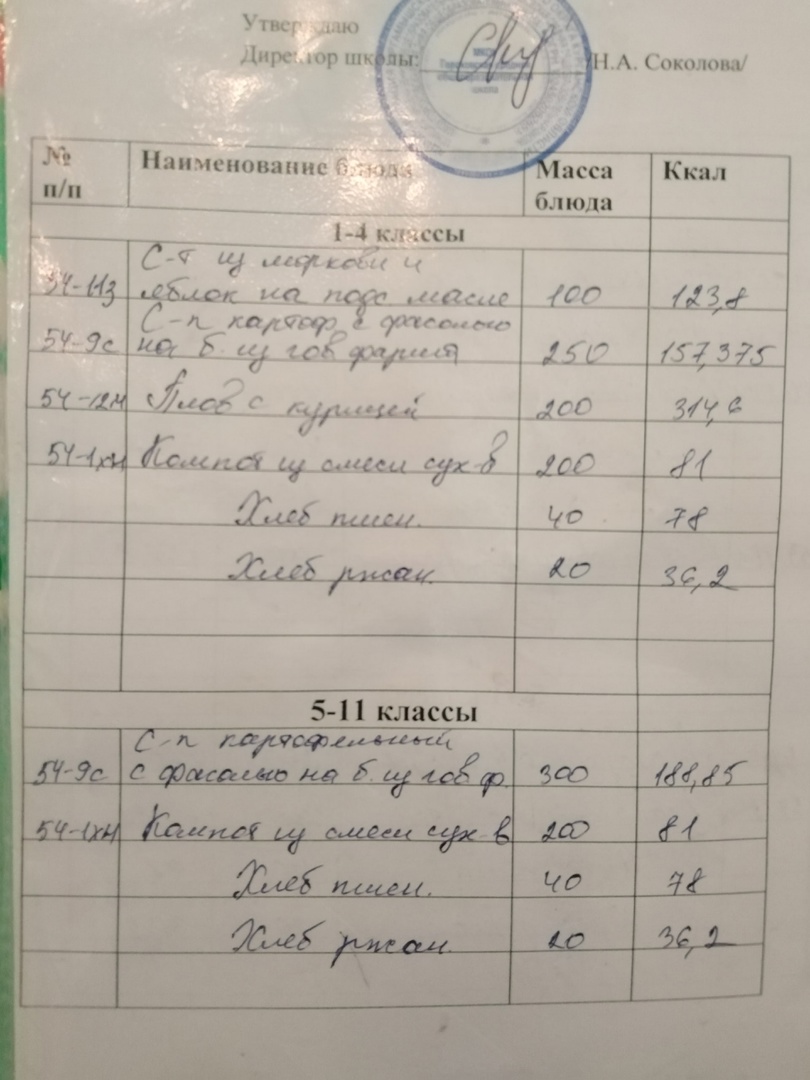 Утверждаю
Директор школы: /Н.А. Соколова/
№ п/п Наименование блюда Масса блюда Ккал
1-4 классы
С-т из моркови и
54-11з яблок на подс масле 100 123,8
С-п картоф. с фасолью
54-9с на б. из гов фарша 250 157,375
54-12м Плов с курицей 200 314,6
54-1хн Компот из смеси сух-в 200 81
Хлеб пшен. 40 78
Хлеб ржан. 20 36,2
5-11 классы
С-п картофельный
54-9с с фасолью на б. из гов ф. 300 188,85
54-1хн Компот из смеси сух-в 200 81
Хлеб пшен. 40 78
Хлеб ржан. 20 36,2